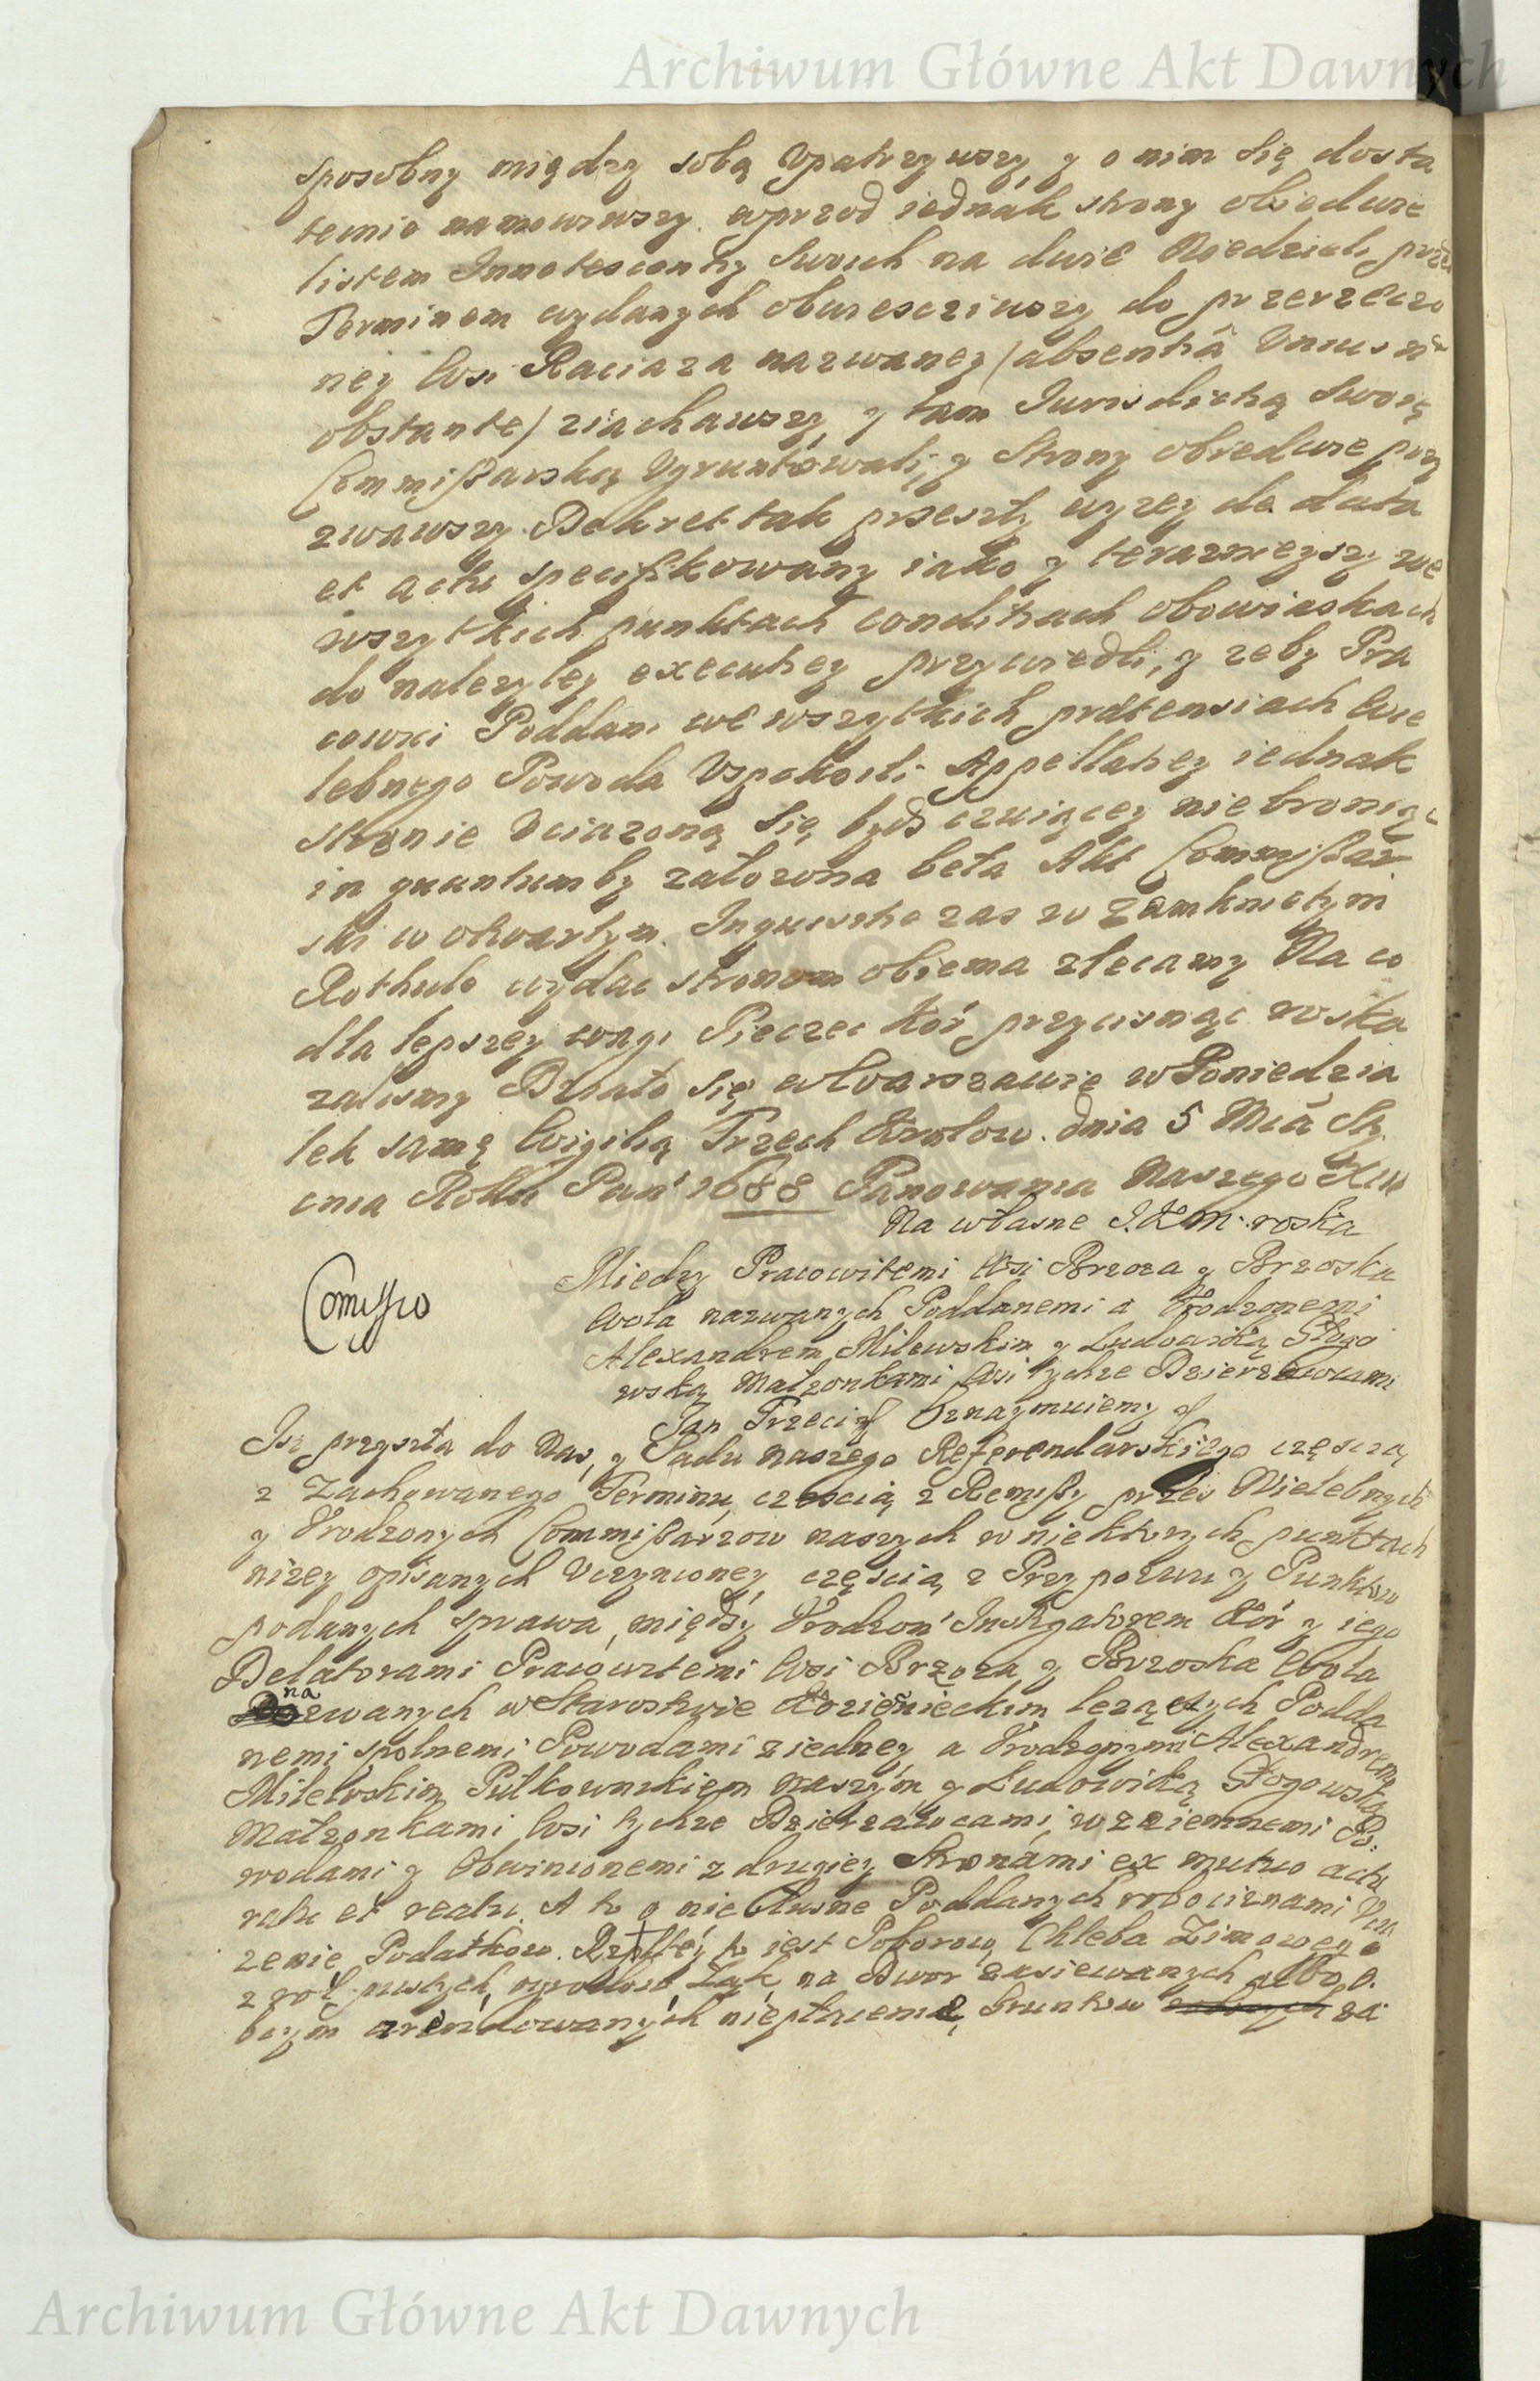 Archiwum Główne Akt Dawnych
sposobny między sobą Vpatrzywszy y o nim się dosta
tecnie namowiwszy. wprzod iednak strony obiedwie
listem Innotescentiy Swoich na dwie Niedzieli przed
Terminem wydanych obwiesciwszy do przerzeczo
ney Wsi Raciaza nazwaney / absentiâ Unius nō
obstante / ziachawszy y tam Iurisdictią Swoię
Commißarską Vgruntowali, y Strony obiedwie przy
zwawszy Dekret tak przeszły wyzey de data
et actu specifikowany iako y teraznieyszy we
wszytkich punktach conditiach obowiaskach
do nalezytey executiey przywiedli, y zeby Pra
cowici Poddani we wszytkich prætensiach Wie
lebnego Powoda Vspokoili Appellatiey iednak
stronie Vciazoną się bydz czuiącey nie broniąc
in quantum by załozona beła Akt Commißar
ski w otwartym. Inquisitie zas w Zamknietym
Rothule wydac stronom obiema zlecamy Na co
dla lepszey wagi Pieczec Kor przycisnąc roska
zalismy Działo się w Warszawie w Poniedzia
łek samę Wigilią Trzech Krolow. dnia 5 Mca Sty
cnia Roku Pan 1688 Panowania Naszego XIIII
Na własne J.K.M. roska
Comissio
Miedzy Pracowitemi Wsi Brzoza y Brzoska
Wola nazwanych Poddanemi a Vrodzonemi
Alexandrem Milewskim y Ludowiką Głogo
wską Małzonkami Wsi tychze Dzierzawcami
Jan Trzeci Oznaymuiemy
Isz przyszła do Nas, y Sadu naszego Referendarskiego częscią
z Zachowanego Terminu, częscią z Remißy przes Wielebnych
y Vrodzonych Commißarzow naszych w niektorych punktach
nizey opisanych Vczynioney, częscią z Przypozwu y Punktow
podanych sprawa, między Vrodzon Instigatorem Kor y iego
Delatorami Pracowitemi Wsi Brzoza y Brzoska Wola
nazwanych w Starostwie Kozienieckim lezących Podda
nemi spolnemi Powodami z iedney a Vrodzonymi Alexandrem
Milewskim Pułkownikiem naszym y Ludowiką Głogowską
Małzonkami Wsi tychze Dzierzawcami, wzaiemnemi Po
wodami y Obwinionemi z drugiey Stronami ex mutuo actu
ratu et reatu. A to o nie słusne Poddanych robociznami
zenie Podatkow. Rzpltey to iest Poborow Chleba Zimowego
z rol pustych, ogrodow Łąk na Dwor zasiewanych albo o
bcym arendowanych niepłacenie, Gruntow za
Archiwum Główne Akt Dawnych